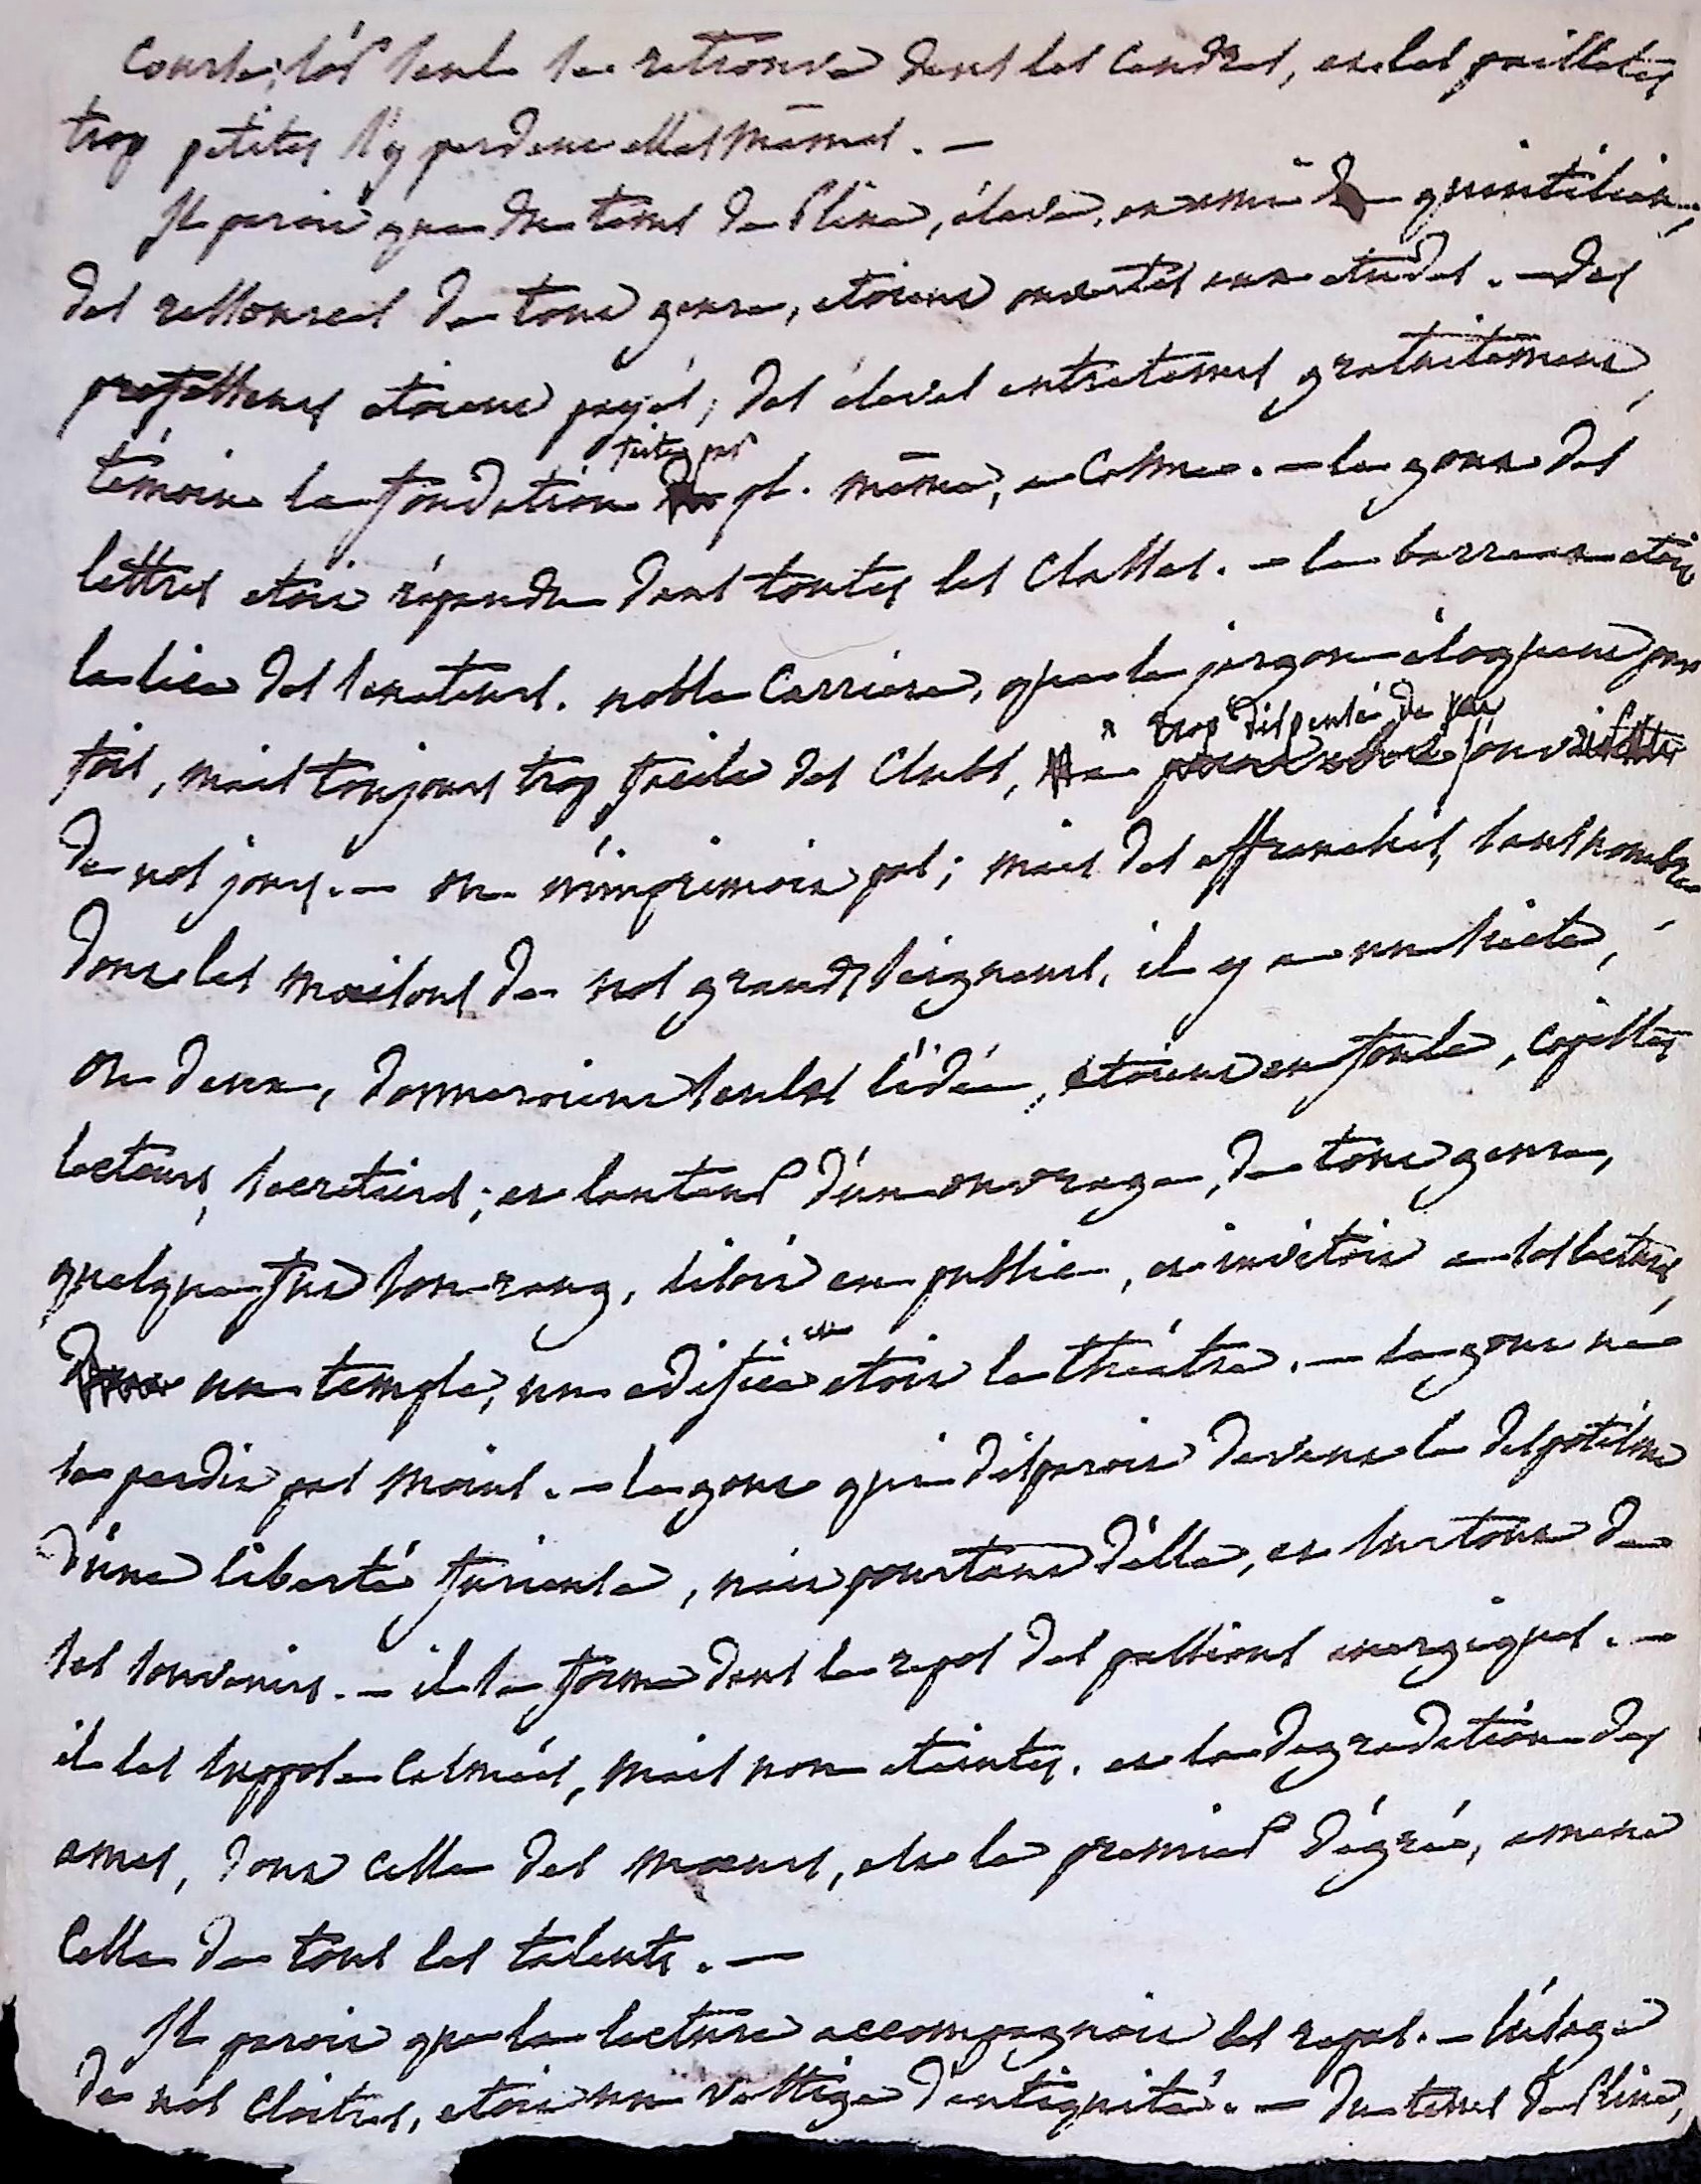 courte; l'or seul se retrouve dans les cendres, et les paillettes
trop petites s'y perdent elles mêmes. —
Il paroit que du tems de Pline, élève, et ami de quintilien,
des ressources de tout genre, etoient ouvertes aux etudes. — des
professeurs etoient payés, des élèves entretenus gratuitement,
témoin la fondation faite par pl. même, a Côme. — le gout des
lettres etoit répandu dans toutes les classes. — le barreau etoit
la lice des senateurs. noble carriere, que le jargon éloquent par
fois, mais toujours trop facile des clubs, a trop dispensé de
de nos jours. — on n'imprimoit pas; mais des affranchis, sans nombre
dont les maisons de nos grands seigneurs, il y a un siecle,
ou deux, donneroient seules l'idée, etoient en foule, copistes
lecteurs, secretaires; et l'auteur d'un ouvrage, de tout genre,
quelque fut son rang, lisoit en public, et invitoit a ses lectures,
un temple, un edifice en etoit le théatre. — le gout ne
se perdit pas moins. — le gout qui disparoit devant le despotisme
d'une liberté furieuse, nait pourtant d'elle, et surtout de
ses souvenirs. — il se forme dans le repos des passions energiques. —
il les suppose calmées, mais non eteintes. et la degradation des
ames, dont celle des mœurs, est le premier dégré, amene
celle de tous les talents. —
Il paroit que la lecture accompagnoit les repas. — l'usage
de nos cloitres, etoit un vestige d'antiquité. — du tems de Pline,